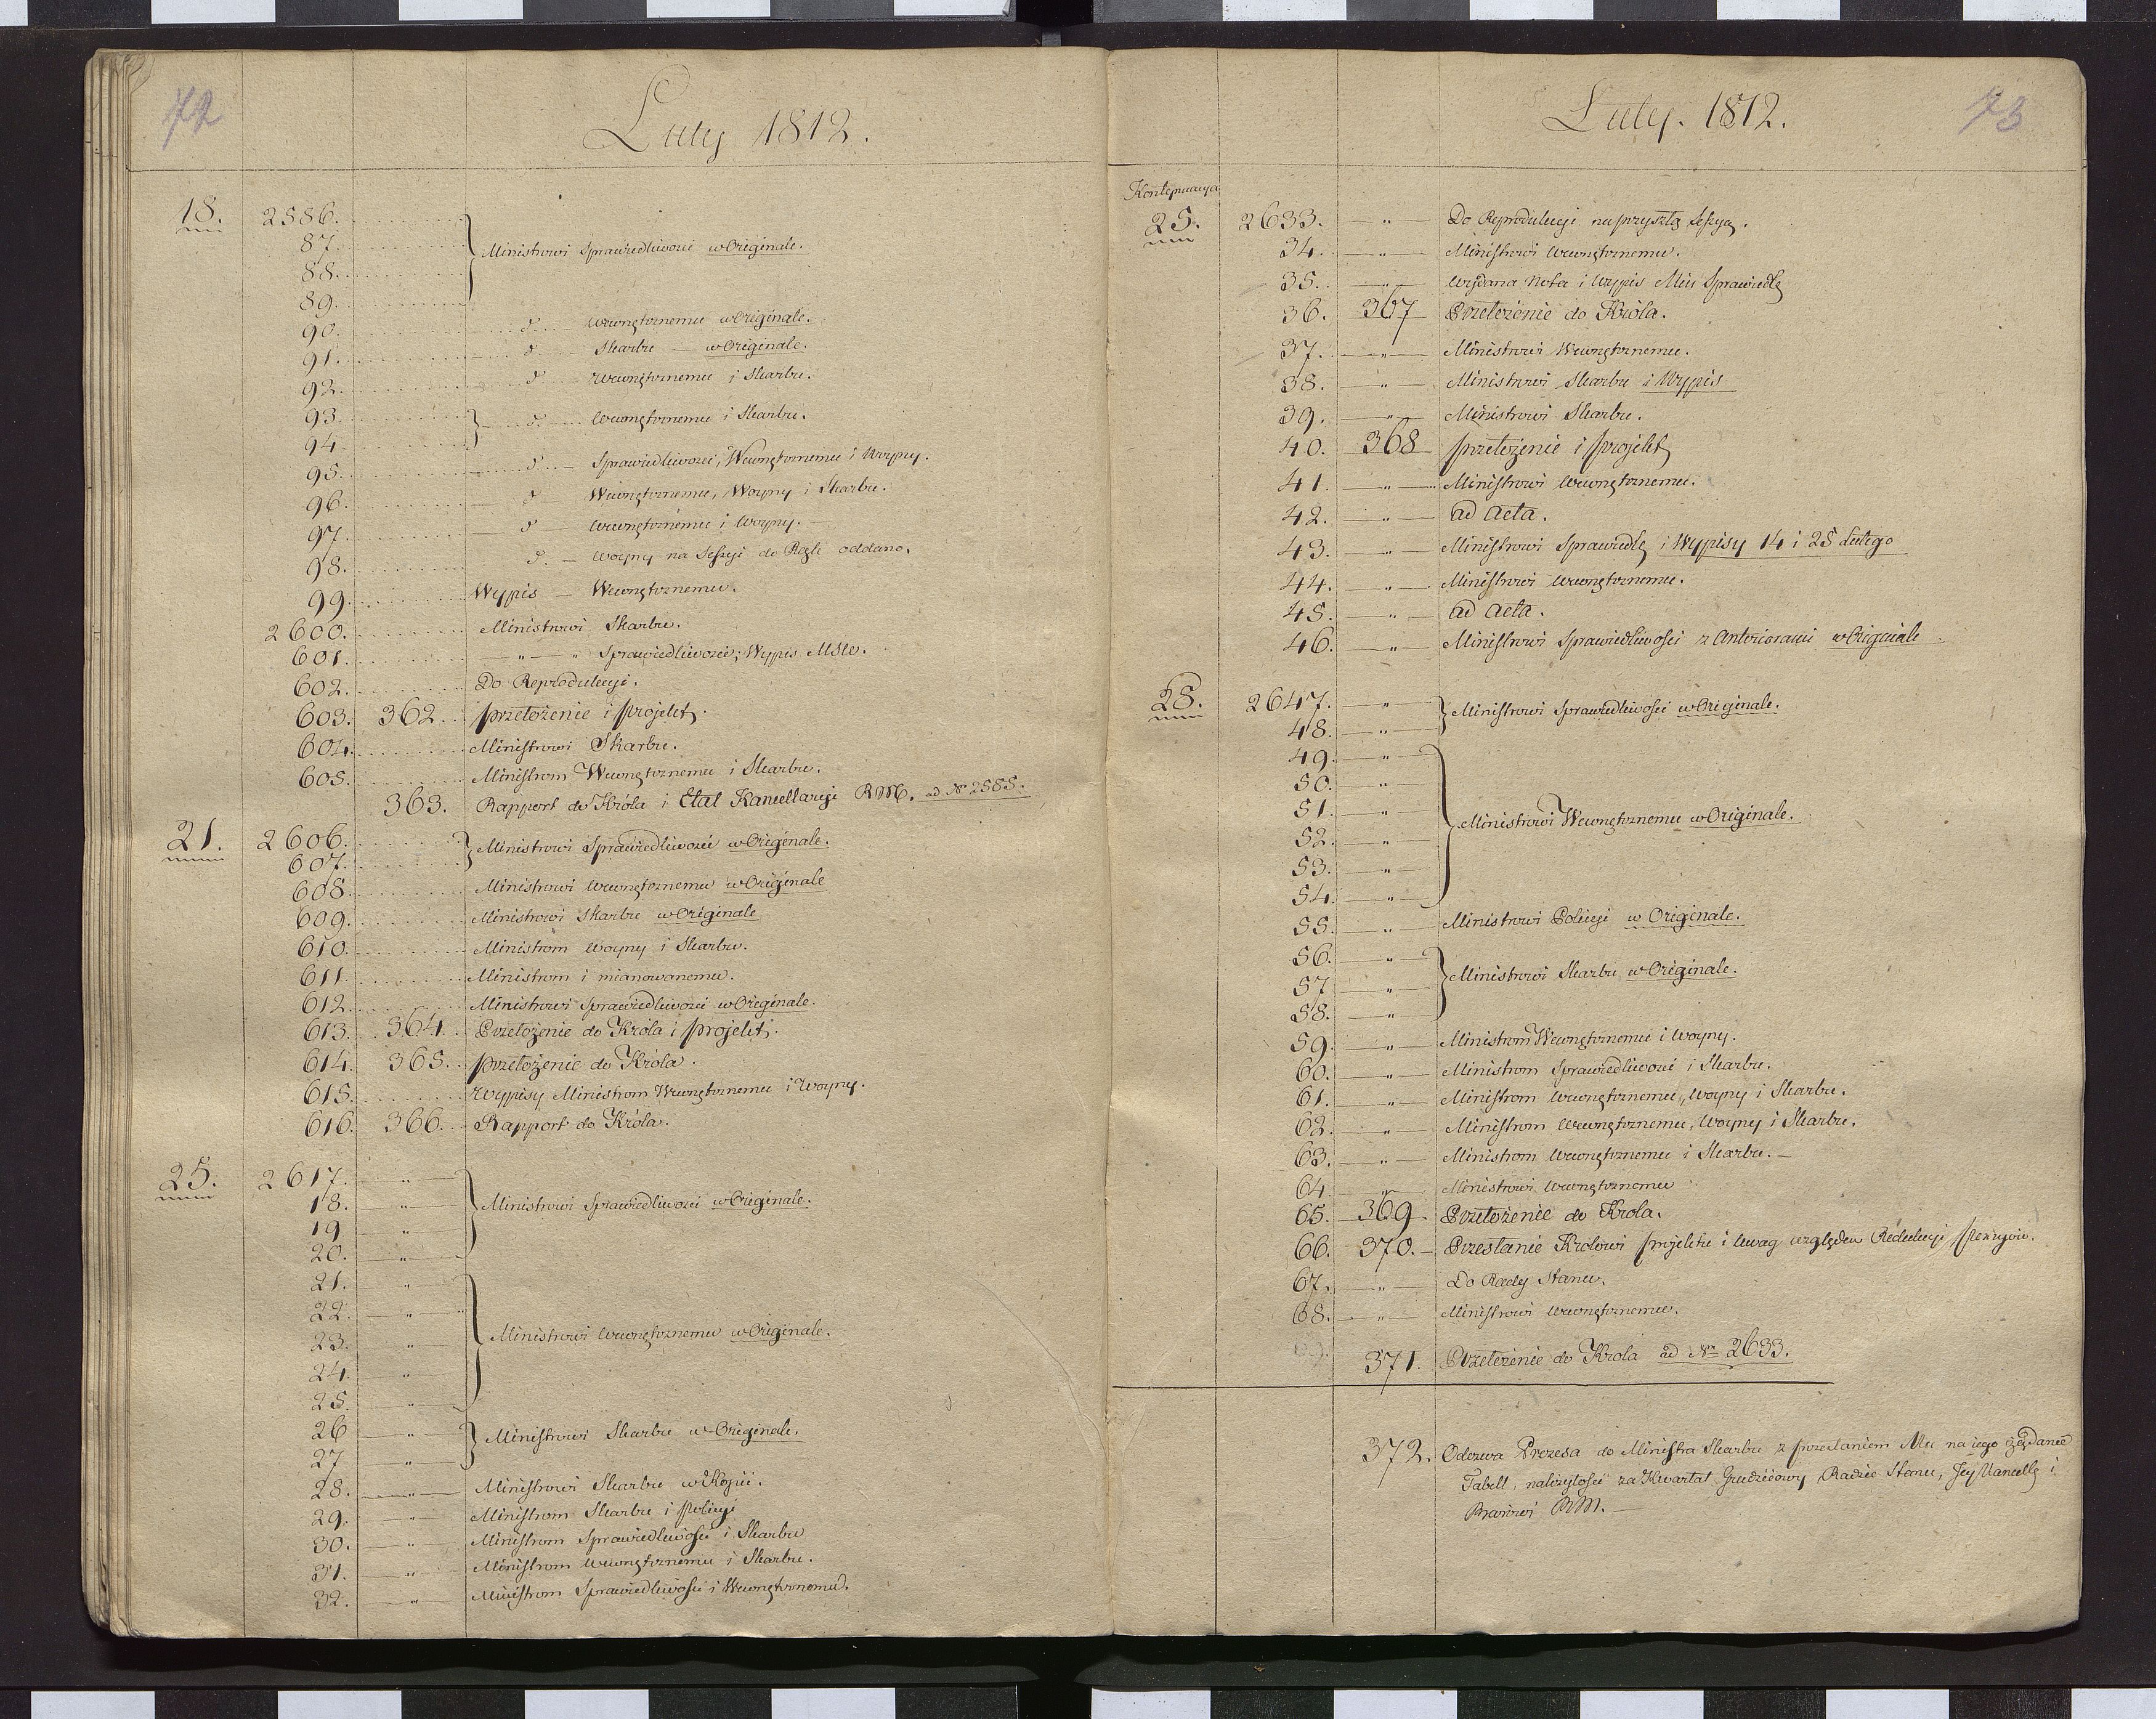 72
Luty 1812.
18. 2586.
87. Ministrowi Sprawiedliwości w Originale.
88.
89.
90. d° Wewnętrznemu w Originale.
91. d° Skarbu w Originale.
92. d° Wewnętrznemu i Skarbu.
93. d° Wewnętrznemu i Skarbu.
94.
95. d° Sprawiedliwości, Wewnętrznemu i Woyny.
96. d° Wewnętrznemu, Woyny i Skarbu.
97. d° Wewnętrznemu i Woyny.
98. d° Woyny na Sessyi do Rąk oddano.
99. Wypis — Wewnętrznemu.
2600. Ministrowi Skarbu.
601. — " — " Sprawiedliwości; Wypis
602. Do Reprodukcyi.
603. 362. przełożenie i projekt.
604. Ministrowi Skarbu.
605. Ministrom Wewnętrznemu i Skarbu.
363. Rapport do Króla i Etat Kancellaryi RM. ad N° 2585.
21. 2606. Ministrowi Sprawiedliwości w Originale.
607.
608. Ministrowi Wewnętrznemu w Originale
609. Ministrowi Skarbu w Originale
610. Ministrom Woyny i Skarbu.
611. Ministrom i mianowanemu.
612. Ministrowi Sprawiedliwości w Originale.
613. 364. Przełożenie do Króla i projekt.
614. 365. przełożenie do Króla.
615. Wypisy Ministrom Wewnętrznemu i Woyny.
616. 366. Rapport do Króla.
25. 2617. "
18. " Ministrowi Sprawiedliwości w Originale.
19 "
20. "
21. "
22. "
23. " Ministrowi Wewnętrznemu w Originale.
24. "
25. "
26 " Ministrowi Skarbu w Originale.
27 "
28. " Ministrowi Skarbu w Kopii.
29. " Ministrom Skarbu i Policyi
30. " Ministrom Sprawiedliwości i Skarbu
31. " Ministrom Wewnętrznemu i Skarbu.
32. " Ministrom Sprawiedliwości i Wewnętrznemu.
Luty. 1812.
73
25. 2633. " Do Reprodukcyi na przyszłą Sessyą.
34. " Ministrowi Wewnętrznemu.
35. " Wydana Nota i Wypis Min Sprawiedlę
36. 367 Przełożenie do Króla.
37. " Ministrowi Wewnętrznemu.
38. " Ministrowi Skarbu i Wypis
39. " Ministrowi Skarbu.
40. 368 przełożenie i projekt
41. " Ministrowi Wewnętrznemu.
42. " ad acta.
43. " Ministrowi Sprawiedlę i Wypisy 14 i 25 Lutego
44. " Ministrowi Wewnętrznemu.
45. " ad acta.
46. " Ministrowi Sprawiedliwości z Anteriorami w Originale
28. 2647. " Ministrowi Sprawiedliwości w Originale.
48. "
49. "
50. "
51. " Ministrowi Wewnętrznemu w Originale.
52. "
53. "
54. "
55. " Ministrowi Policyi w Originale.
56. "
57 " Ministrowi Skarbu w Originale.
58. "
59. " Ministrom Wewnętrznemu i Woyny.
60. " Ministrom Sprawiedliwości i Skarbu.
61. " Ministrom Wewnętrznemu, Woyny i Skarbu.
62. " Ministrom Wewnętrznemu, Woyny i Skarbu.
63. " Ministrom Wewnętrznemu i Skarbu. —
64. " Ministrowi Wewnętrznemu
65. 369. Przełożenie do Króla.
66. 370. Przesłanie Królowi projektu i uwag względem Redukcyi
67. " Do Rady Stanu.
68. " Ministrowi Wewnętrznemu.
371. Przełożenie do Króla ad N° 2633.
372. Odezwa Prezesa do Ministra Skarbu z przesłaniem Mu na iego żądanie
Tabell, należytości za Kwartał Grudniowy Radzie Stanu, Jey Kancellę i
RM. —